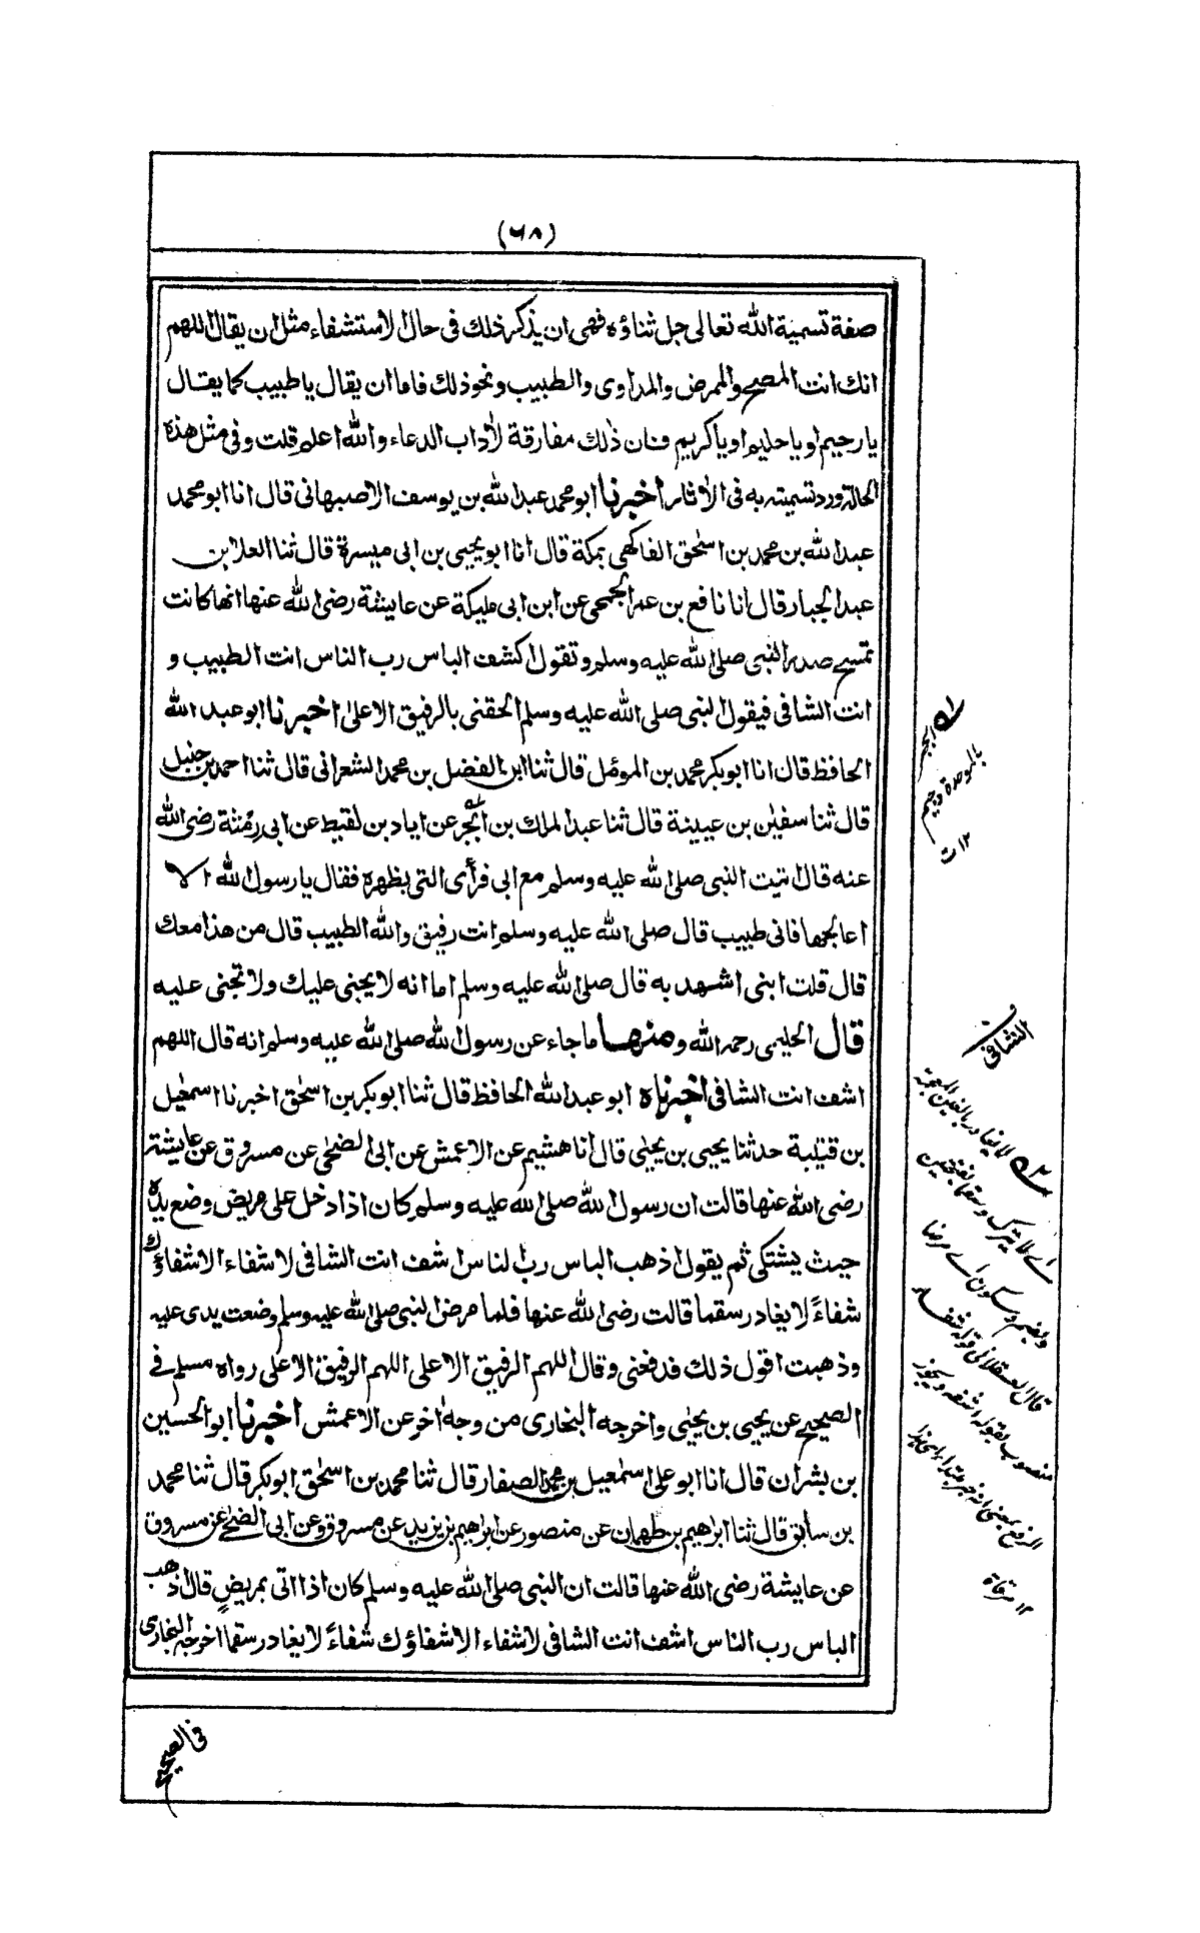 (٦٨)
صفة تسمية الله تعالى جل ثناؤه فهى ان يذكر ذلك فى حال الاستشفاء مثل ان يقال اللهم
انك انت المصحح والممرض والمداوى والطبيب ونحو ذلك فاما ان يقال يا طبيب كما يقال
يا رحيم او يا حليم او يا كريم فان ذلك مفارقة لاداب الدعاء والله اعلم قلت وفى مثل هذه
الحالة ورد تسميته به فى الاثار اخبرنا ابو محمد عبد الله بن يوسف الاصبهانى قال انا ابو محمد
عبد الله بن محمد بن اسحٰق الفاكهى بمكة قال انا ابو يحيى بن ابى ميسرة قال ثنا العلا بن
عبد الجبار قال انا نافع بن عمر الجمحى عن ابن ابى مليكة عن عايشة رضى الله عنها انها كانت
تمسح صدر النبى صلى الله عليه وسلم وتقول اكشف الباس رب الناس انت الطبيب و
انت الشافى فيقول النبى صلى الله عليه وسلم الحقنى بالرفيق الاعلىٰ اخبرنا ابو عبد الله
الحافظ قال انا ابو بكر محمد بن المومٔل قال ثنا الفضل بن محمد الشعرانى قال ثنا احمد بن حنبل
قال ثنا سفيٰن بن عيينة قال ثنا عبد الملك بن ابجر عن اياد بن لقيط عن ابى رمثة رضى الله
عنه قال اتيت النبى صلى الله عليه وسلم مع ابى فرأى التى بظهره فقال يا رسول الله الا
اعالجها فانى طبيب قال صلى الله عليه وسلم انت رفيق والله الطبيب قال من هذا معك
قال قلت ابنى اشهد به قال صلى الله عليه وسلم اما انه لا يجنى عليك ولا تجنى عليه
قال الحليمى رحمه الله ومنها ما جاء عن رسول الله صلى الله عليه وسلم انه قال اللهم
اشف انت الشافى اخبرناه ابو عبد الله الحافظ قال ثنا ابو بكر بن اسحٰق اخبرنا اسمٰعيل
بن قتيبة حدثنا يحيى بن يحيٰى قال انا هشيم عن الاعمش عن ابى الضحٰى عن مسروق عن عايشة
رضى الله عنها قالت ان رسول الله صلى الله عليه وسلم كان اذا دخل على مريض وضع يده
حيث يشتكى ثم يقول اذهب الباس رب الناس اشف انت الشافى لا شفاء الا شفاؤك
شفاءً لا يغادر سقما قالت رضى الله عنها فلما مرض النبى صلى الله عليه وسلم وضعت يدى عليه
وذهبت اقول ذلك فدفعنى وقال اللهم الرفيق الاعلى اللهم الرفيق الاعلى رواه مسلم فى
الصحيح عن يحيى بن يحيٰى واخرجه البخارى من وجه اخر عن الاعمش اخبرنا ابو الحسين
بن بشران قال انا ابو على اسمٰعيل بن محمد الصفار قال ثنا محمد بن اسحٰق ابو بكر قال ثنا محمد
بن سابق قال ثنا ابراهيم بن طهمان عن منصور عن ابراهيم بن يزيد عن مسروق وعن ابى الضحٰى عن مسروق
عن عايشة رضى الله عنها قالت ان النبى صلى الله عليه وسلم كان اذا اتى بمريضٍ قال اذهب
الباس رب الناس اشف انت الشافى لا شفاء الا شفاؤك شفاءً لا يغادر سقما اخرجه البخارى
فى الصحيح
١ ابجر
بالموحدة وجيم
١٢ ت
الشافى
٢ لا يغادر بالغين المعجمة
اى لا يترك وسقما بفتحتين
وبضم وسكون اى مرضا
قال العسقلانى قوله شفاء
منصوب بقوله اشف ويجوز
الرفع
١٢ مرقاة